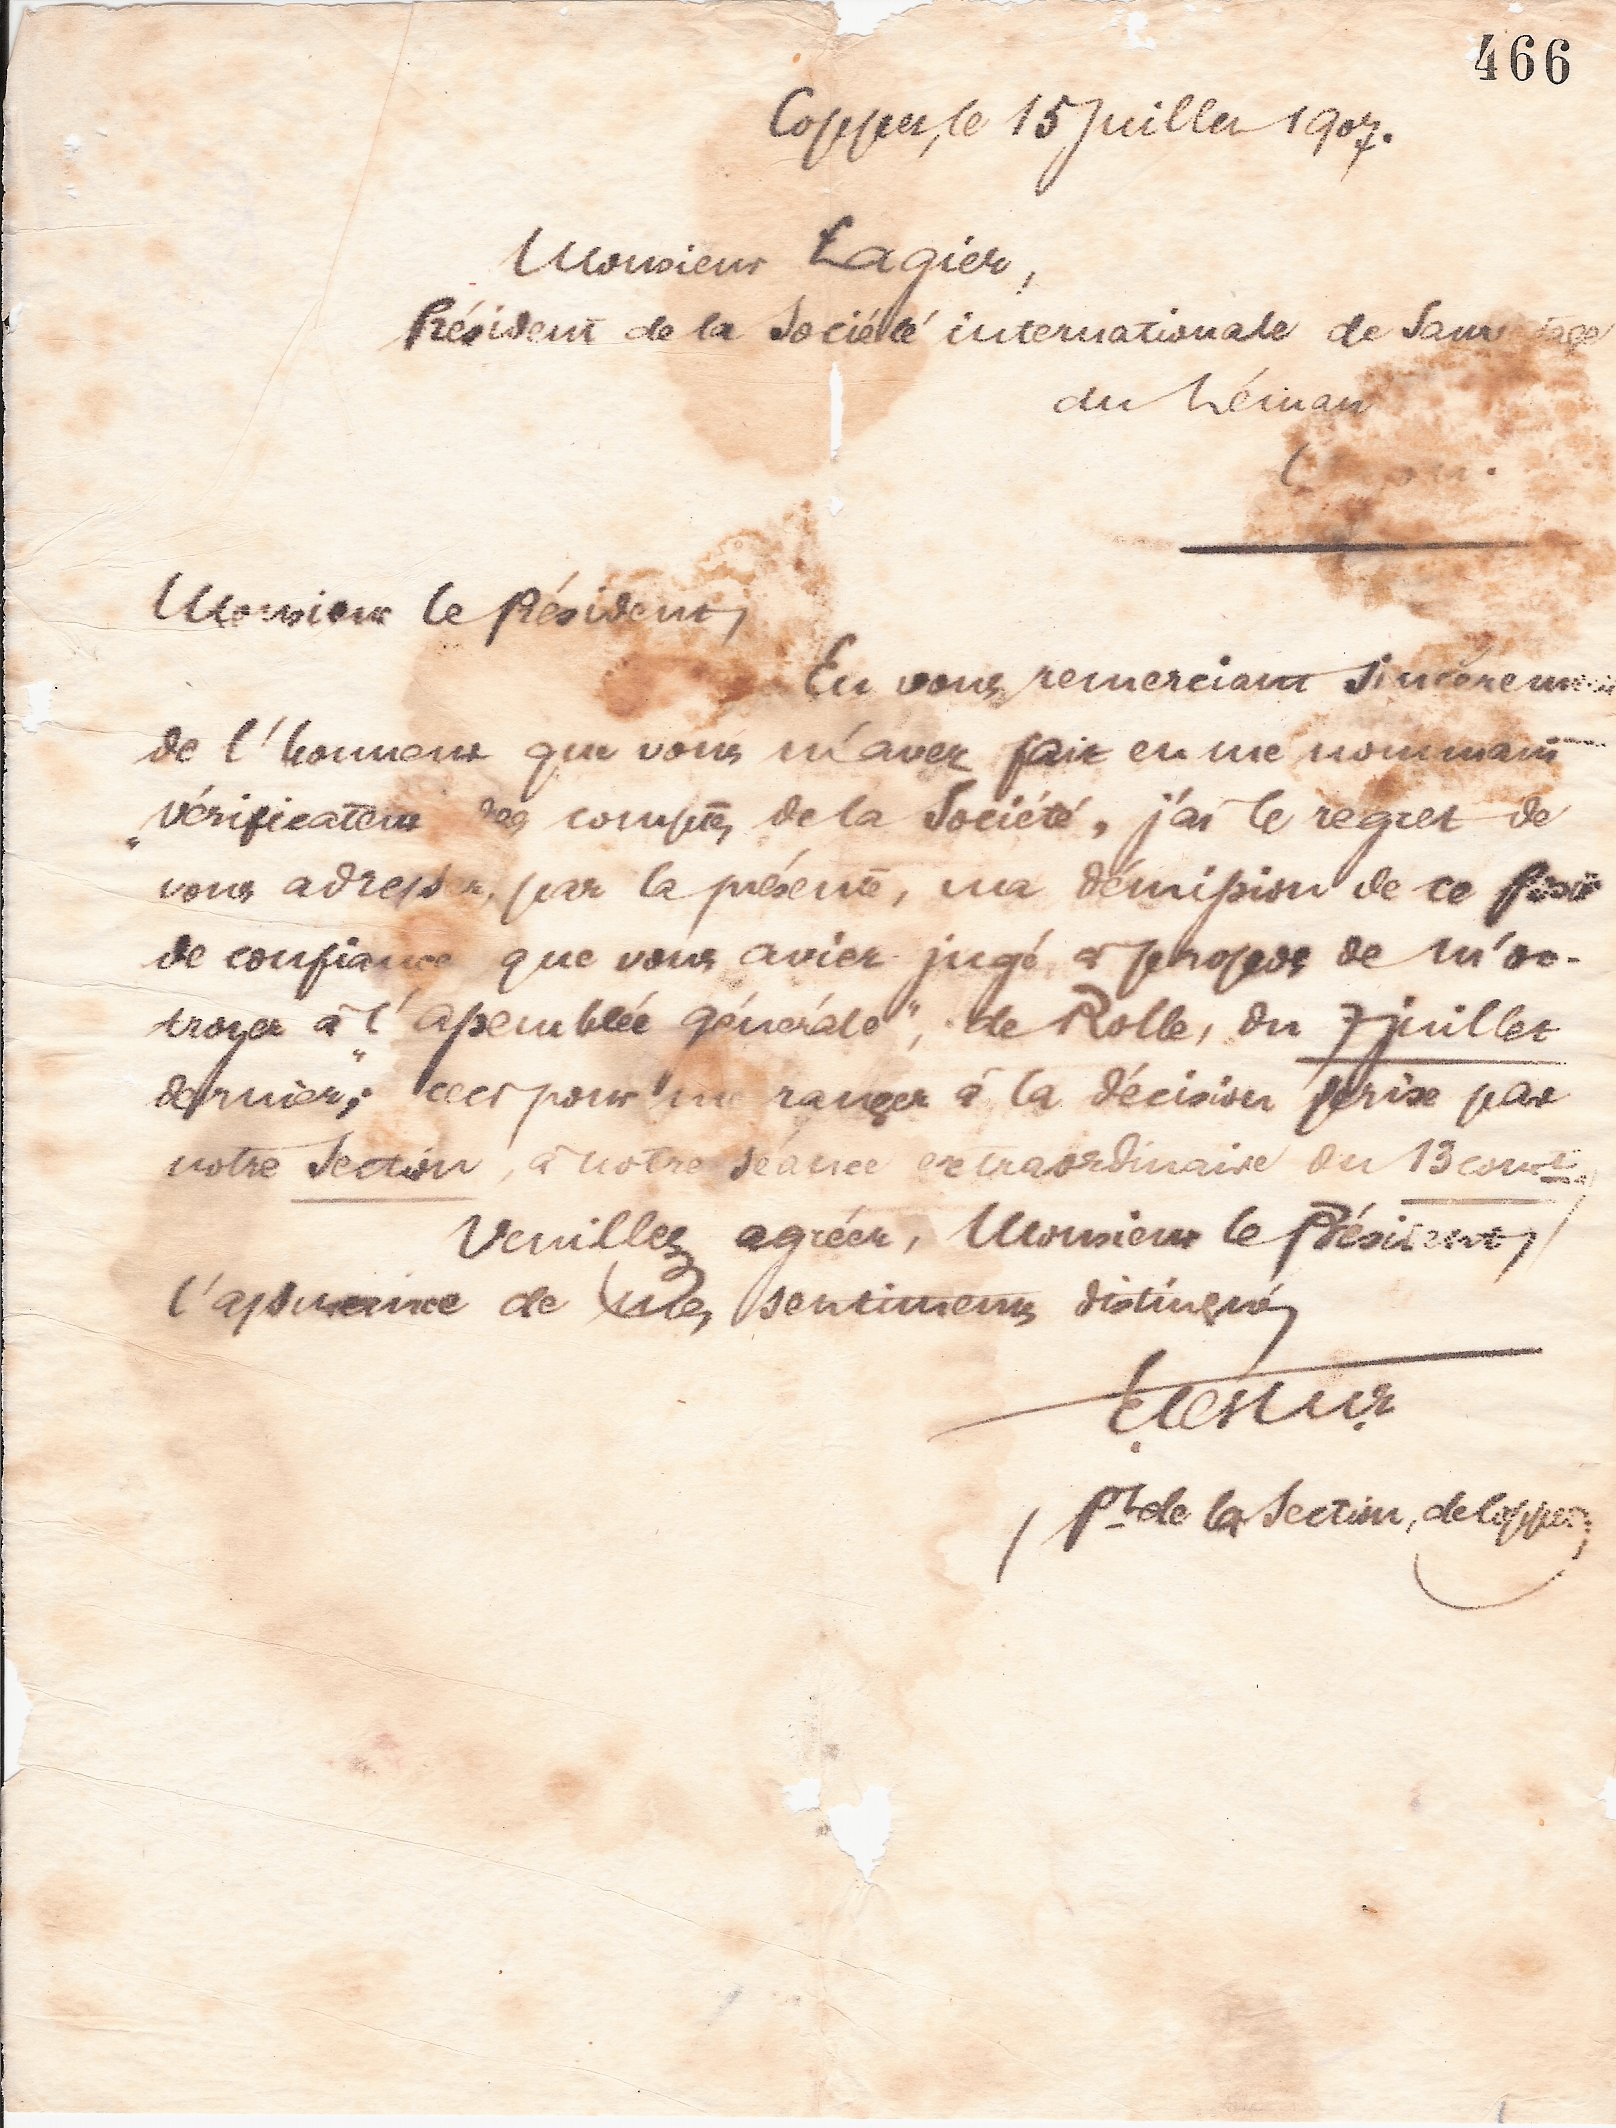 466
Coppet, le 15 Juillet 1907.
Monsieur Lagier,
Président de la Société internationale de Sauvetage
du Léman
Monsieur le Président,
En vous remerciant sincèrement
de l'honneur que vous m'avez fait en me nommant
"vérificateur des comptes de la Société, j'ai le regret de
vous adresser, par la présente, ma démission de ce poste
de confiance que vous aviez jugé à propos de m'oc-
troyer à l'"assemblée générale", de Rolle, du 7 juillet
dernier; ceci pour me ranger à la décision prise par
notre Section, à notre séance extraordinaire du 13 cour^t.
Veuillez agréer, Monsieur le Président,
l'assurance de mes sentiments distingués
pt de la Section, de Coppet;